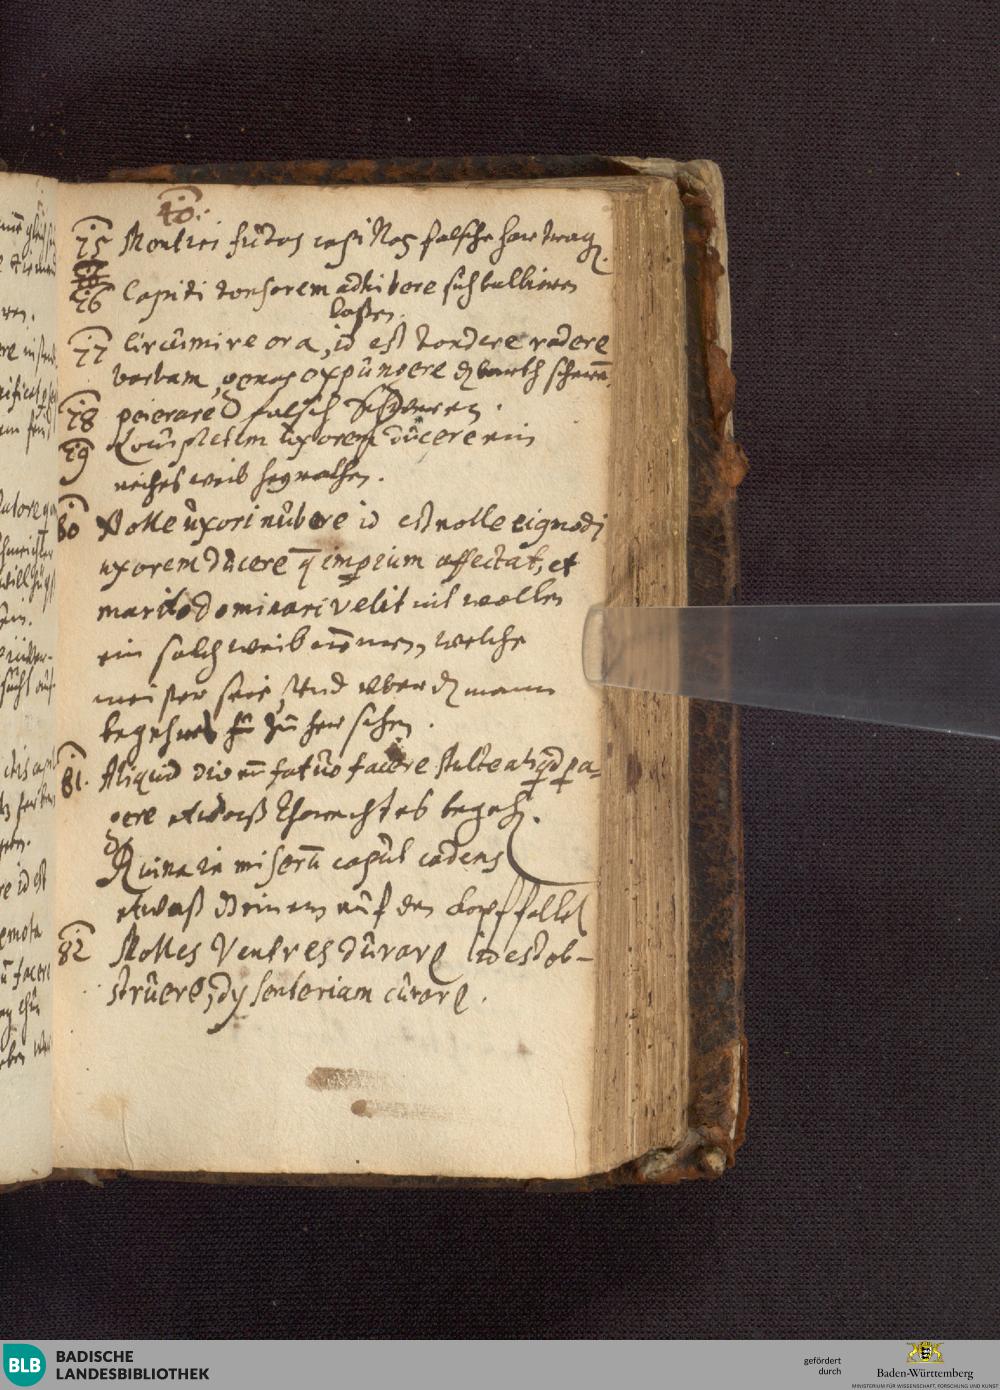 40.
75 Mentiri fictos capillos falsche har trag.
76 Capiti tonsorem adhibere sich balbieren
laßen.
77 Circumire ora, id est tondere radere
barbam, genas expungere
78 peierare, falsch schweren.
79 Locupletem uxorem ducere ein
reiches weib heyrathen.
80 Nolle uxori nubere id est nolle eiusmodi
uxorem ducere q imperium affectat, et
marito dominari velit nit wollen
ein solch weib nemmen, welche
meister seie, und uber dz mann
begehret zu herschen.
81. Aliquid dictu fatuo facere stulte aliqd pa-
gere etwaß thorechtes begeh.
Ruina in miserū caput cadens
etwaß dz einem auf den kopf fellet
82 Molles Ventres durare id est ob-
struere, dysenteriam curare.
BLB BADISCHE
LANDESBIBLIOTHEK
gefördert
durch
Baden-Württemberg
MINISTERIUM FÜR WISSENSCHAFT, FORSCHUNG UND KUNST